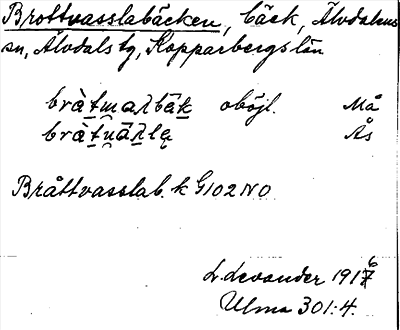 Brottvasslabäcken, bäck, Älvdalens
sn, Älvdals tg, Kopparbergs län
oböjl. Må
Ås
Bråttvasslab. k G102 NO
L. Levander 1916
Ulma 301:4.